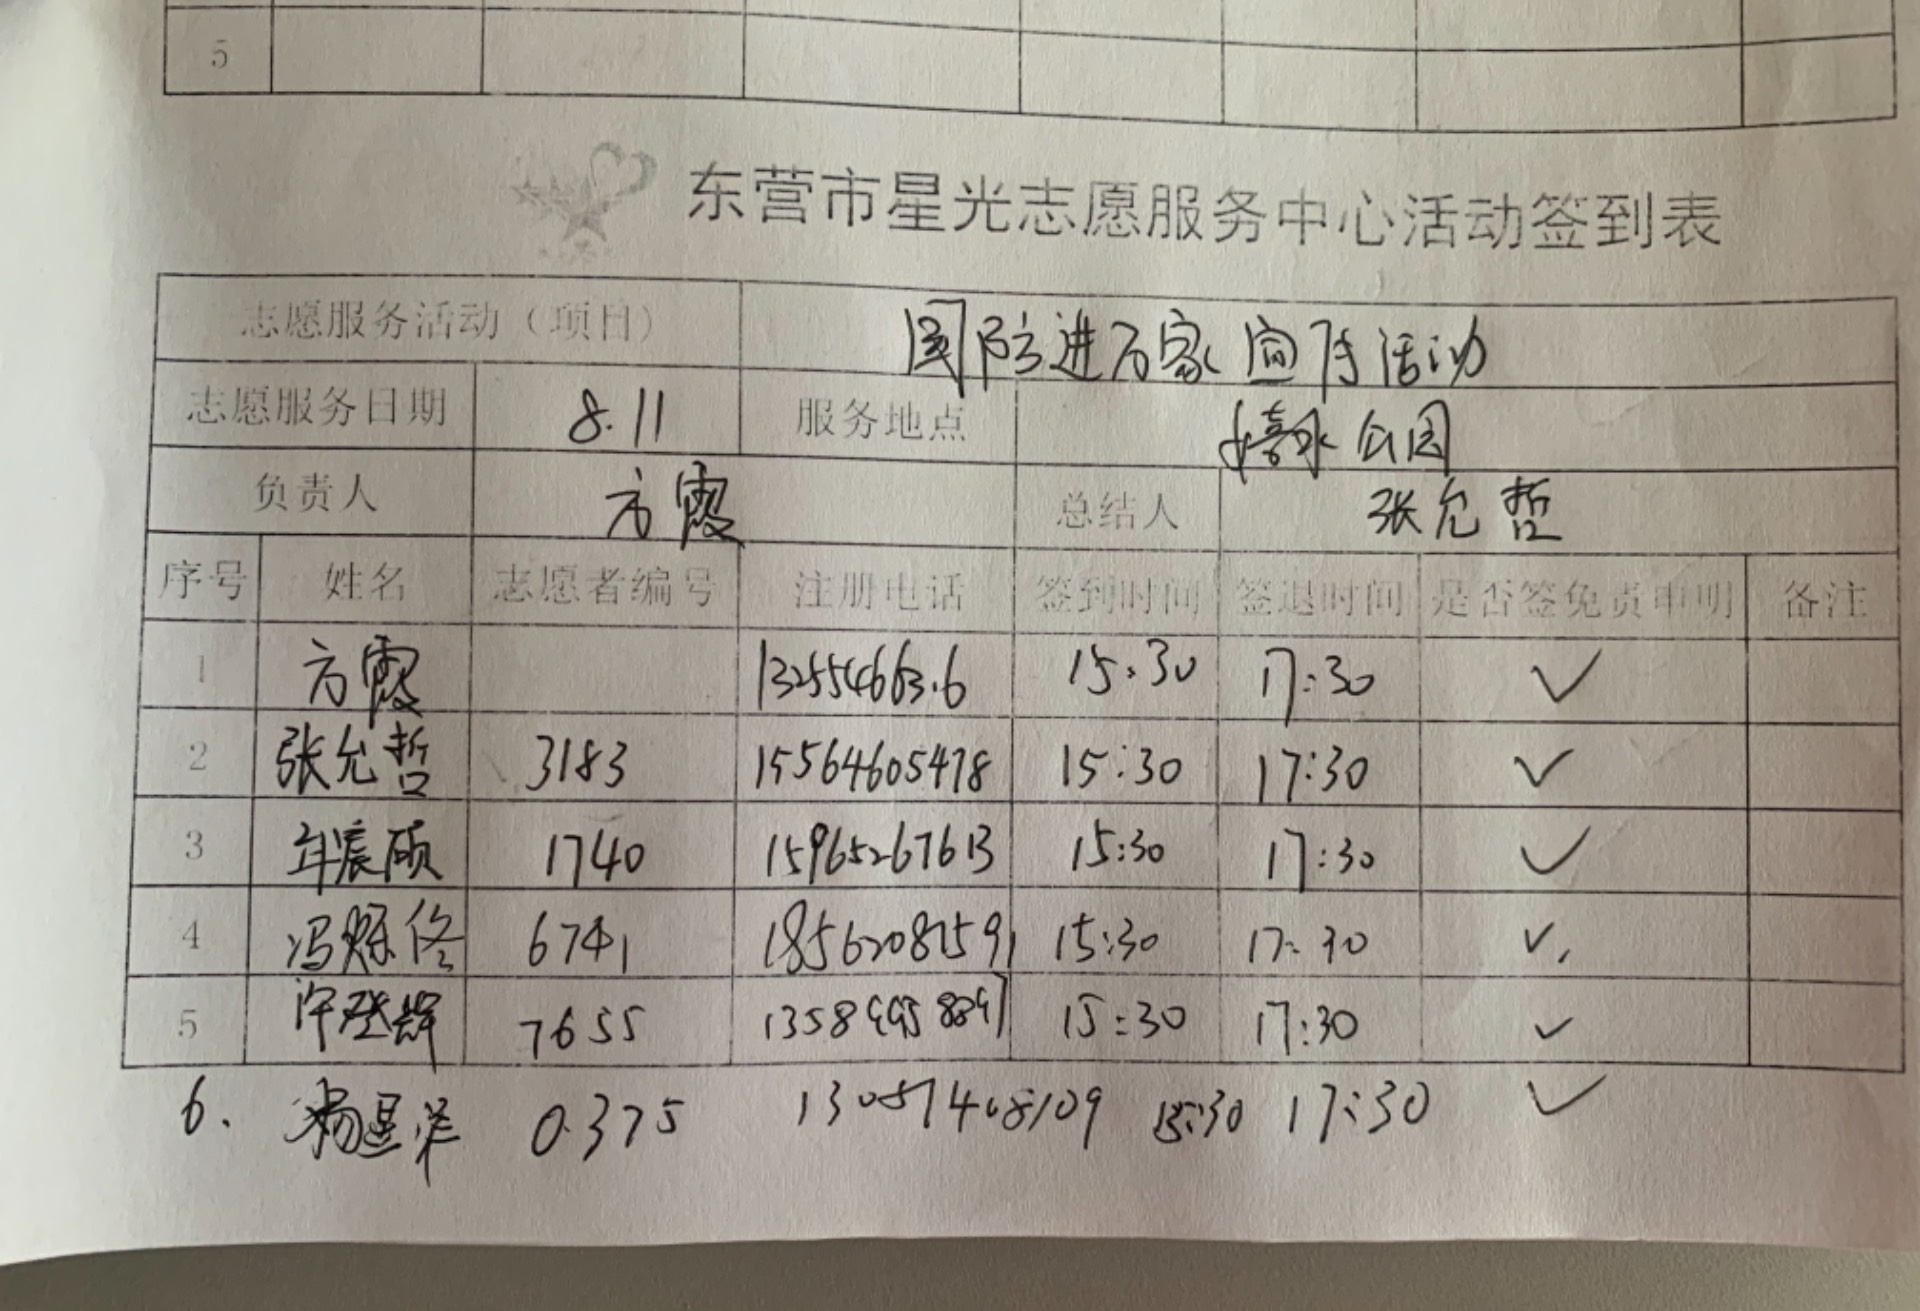 5
东营市星光志愿服务中心活动签到表
志愿服务活动（项目） 国防进万家宣传活动
志愿服务日期 8.11 服务地点 公园
负责人 方霞 总结人 张允哲
序号 姓名 志愿者编号 注册电话 签到时间 签退时间 是否签免责申明 备注
1 方霞 15:30 17:30 ✓
2 张允哲 3183 15564605478 15:30 17:30 ✓
3 年宸硕 1740 15965267613 15:30 17:30 ✓
4 冯烁佟 6741 18562087591 15:30 17:30 ✓
5 7655 15:30 17:30 ✓
6. 0375 13057408109 15:30 17:30 ✓